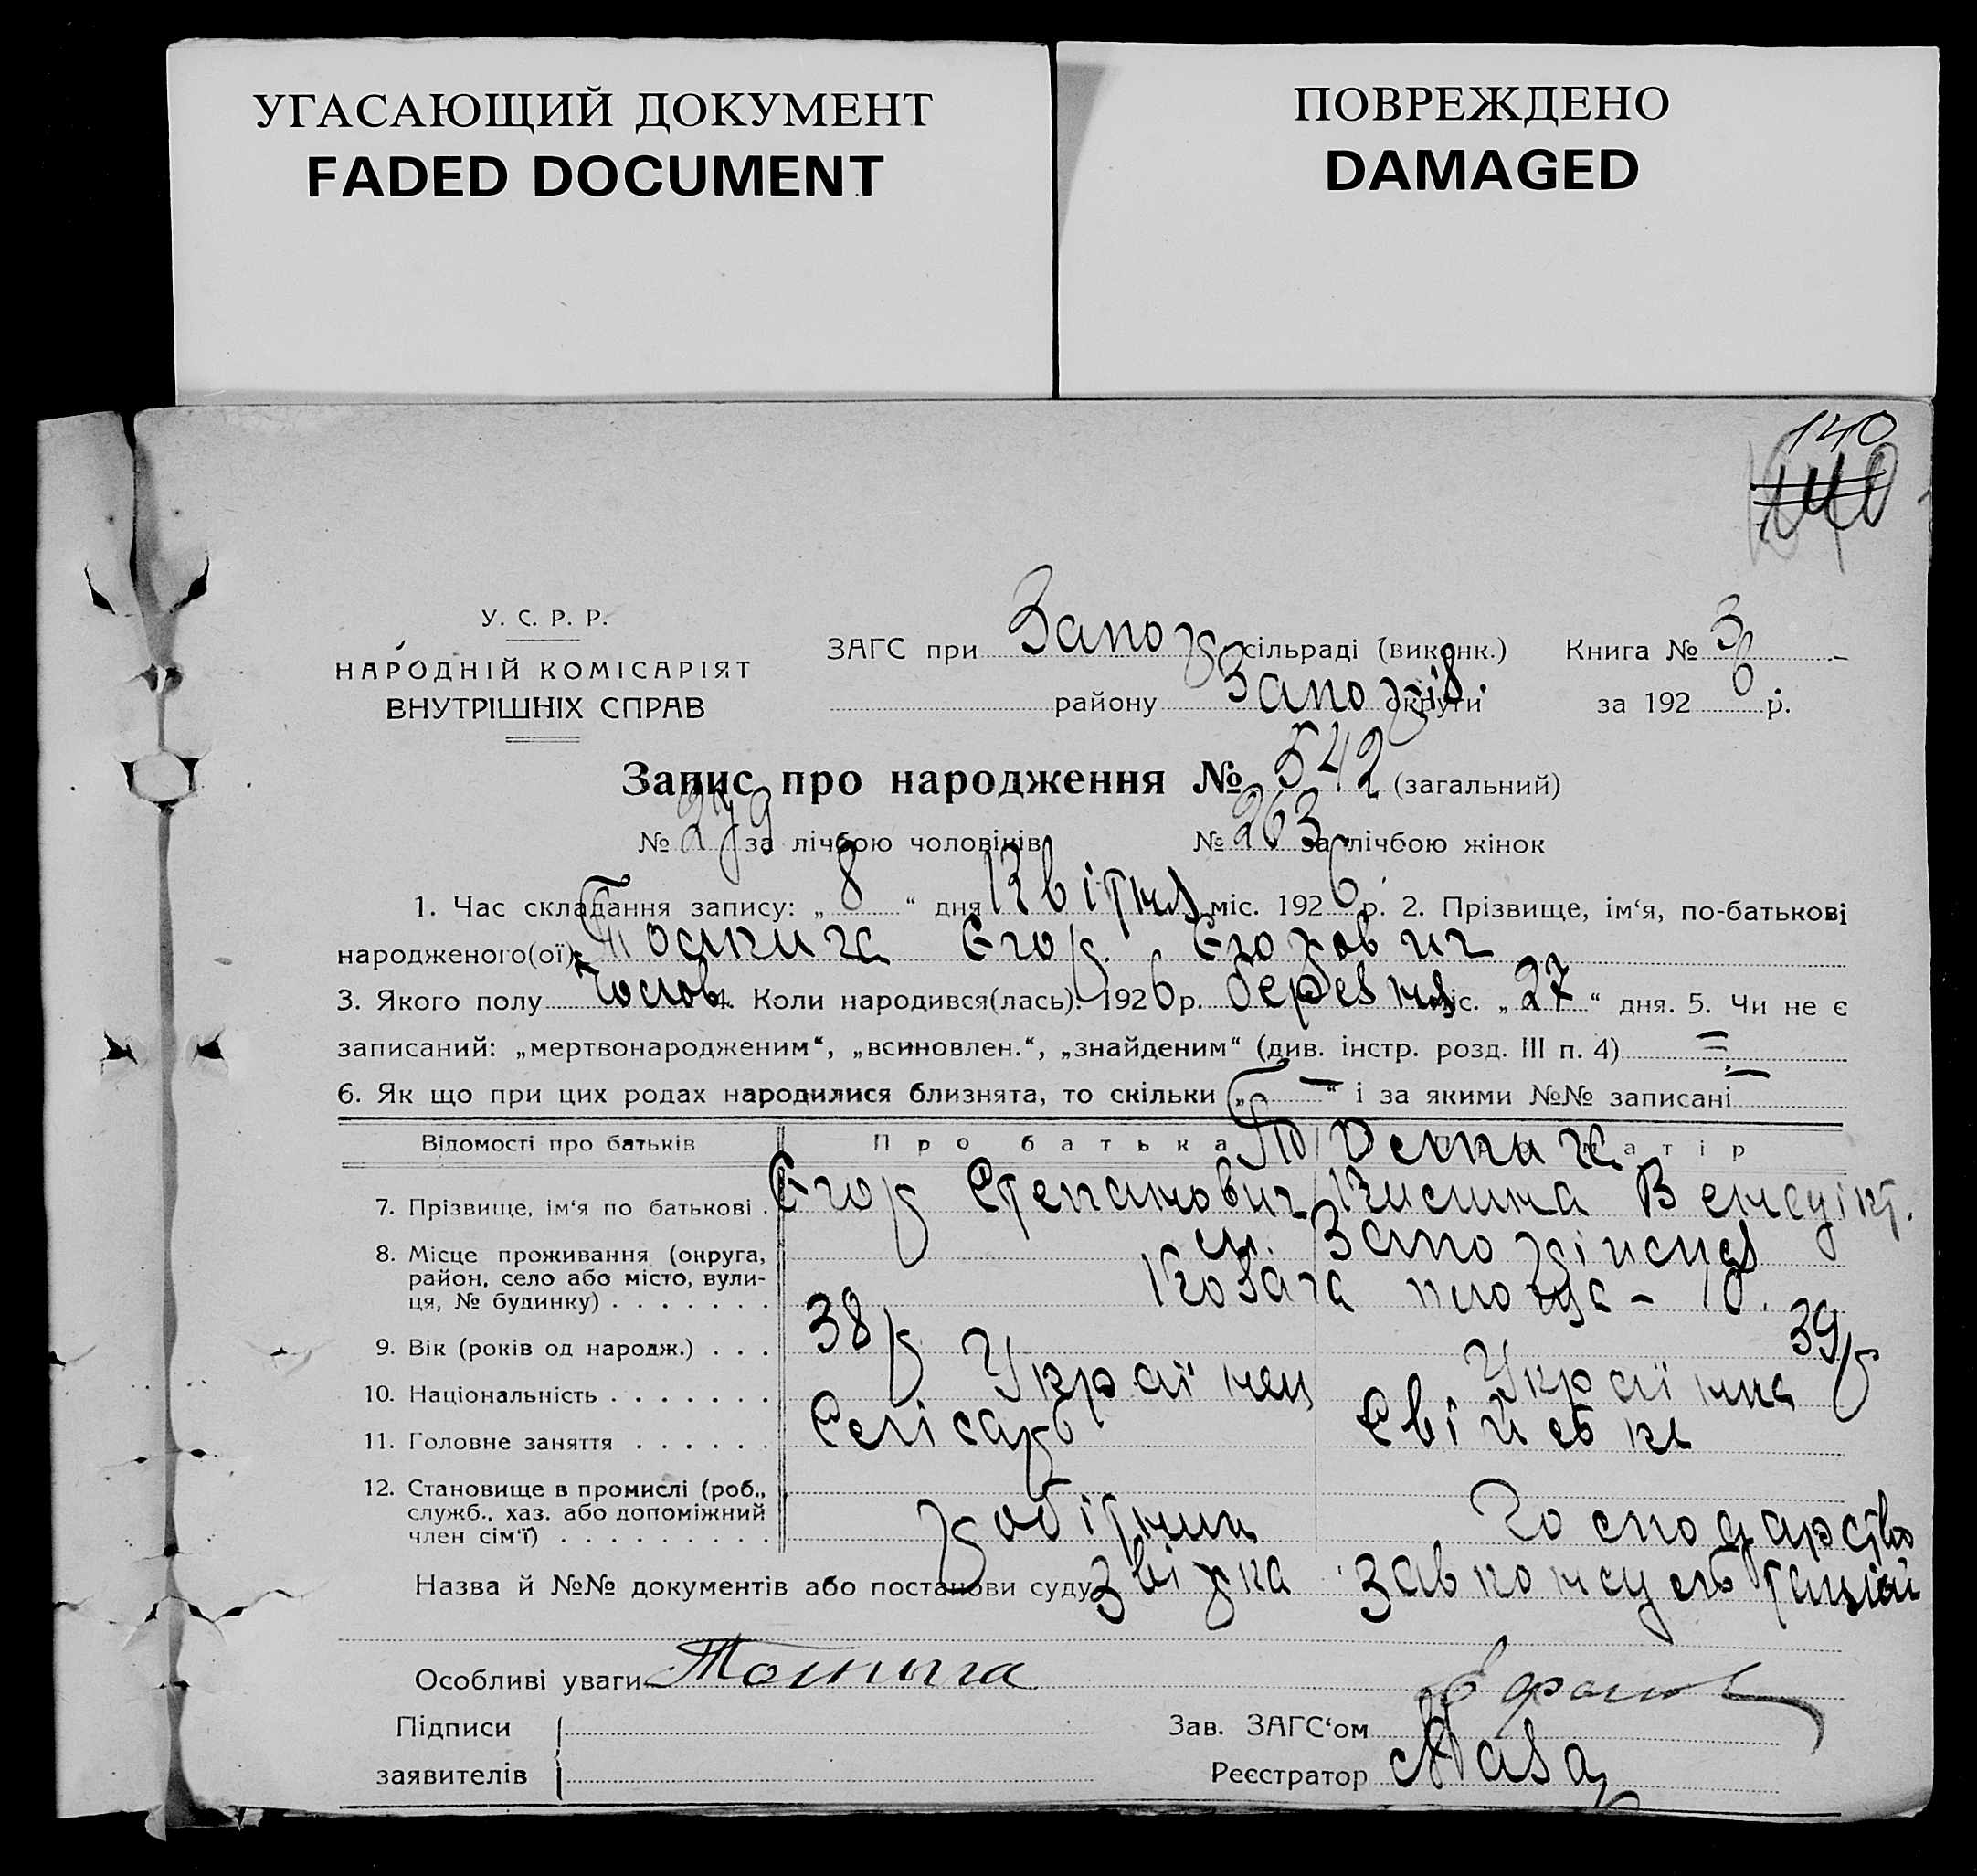 УГАСАЮЩИЙ ДОКУМЕНТ
FADED DOCUMENT
ПОВРЕЖДЕНО
DAMAGED
140
140
У. С. Р. Р.
НАРОДНІЙ КОМІСАРІЯТ
ВНУТРІШНІХ СПРАВ
ЗАГС при Запор сільраді (виконк.) Книга № 3
району Запоріз. округи за 1926 р.
Запис про народження № 542 (загальний)
№ 279 за лічбою чоловіків № 263 за лічбою жінок
1. Час складання запису: „ 8 “ дня Квітня міс. 1926 р. 2. Прізвище, ім‘я, по-батькові
народженого(ої): Єгор Єгорович
3. Якого полу чолов. 4. Коли народився(лась). 1926 р. березня міс. „ 27 “ дня. 5. Чи не є
записаний: „мертвонародженим“, „всиновлен.“, „знайденим“ (див. інстр. розд. III п. 4) =
6. Як що при цих родах народилися близнята, то скільки „ — “ і за якими №№ записані —
Відомості про батьків Про батька матір
7. Прізвище, ім‘я по батькові . Єгор Степанович
8. Місце проживання (округа,
район, село або місто, вули-
ця, № будинку) . . . . . . . Козача площа - 10.
9. Вік (років од народж.) . . . 38 р 39 р
10. Національність . . . . . . . Українец Українка
11. Головне заняття . . . . . . Слісарь
12. Становище в промислі (роб.,
служб., хаз. або допоміжний
член сім‘ї) . . . . . . . . . робітник господарство
Назва й №№ документів або постанови суду
Особливі уваги
Підписи
заявителів
Зав. ЗАГС‘ом
Реєстратор